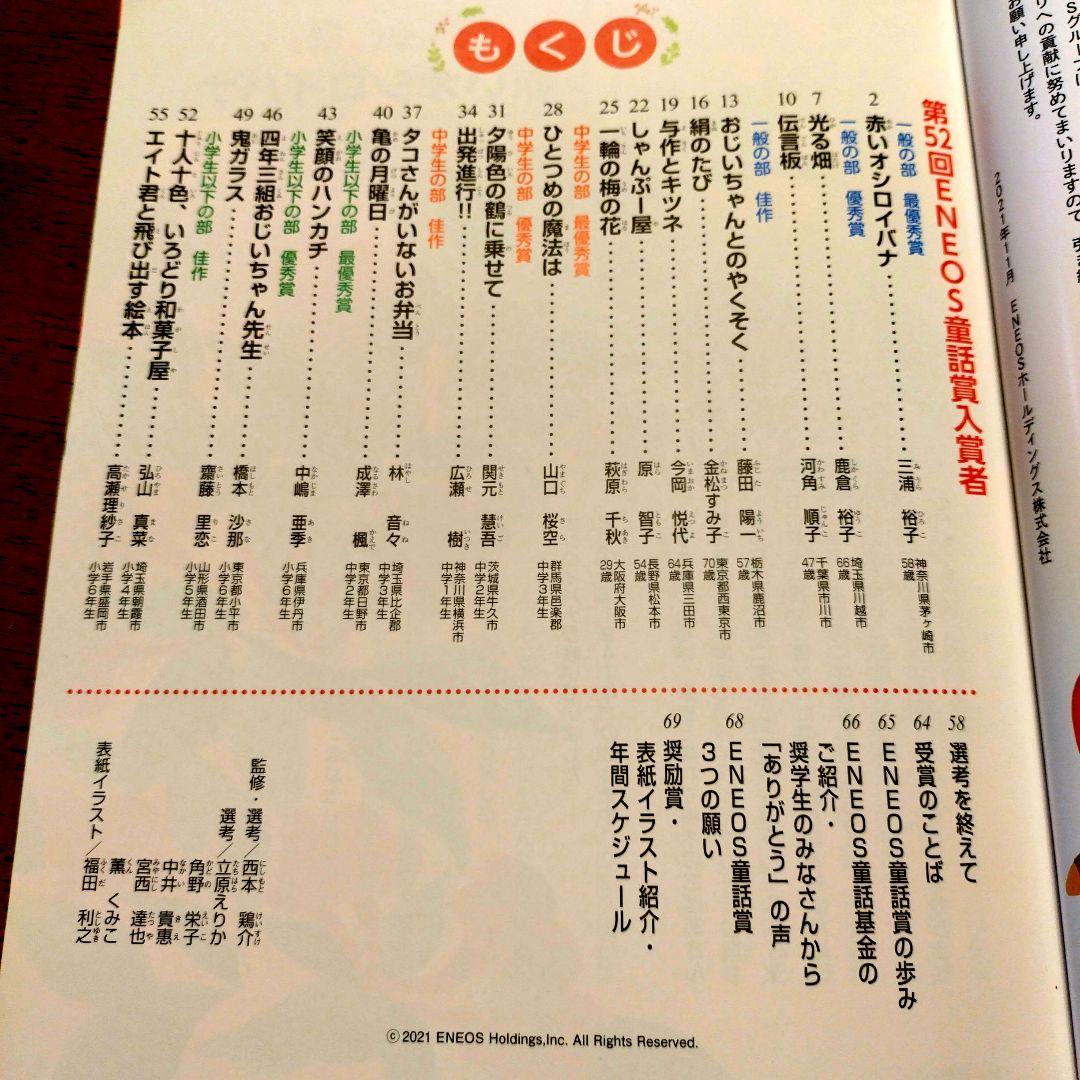 もくじ
第52回ENEOS童話賞入賞者
一般の部 最優秀賞
2 赤いオシロイバナ 三浦 裕子 神奈川県茅ヶ崎市 58歳
一般の部 優秀賞
7 光る畑 鹿倉 裕子 埼玉県川越市 66歳
10 伝言板 河角 順子 千葉県市川市 47歳
一般の部 佳作
13 おじいちゃんとのやくそく 藤田 陽一 栃木県鹿沼市 57歳
16 絹のたび 金松すみ子 東京都西東京市 70歳
19 与作とキツネ 今岡 悦代 兵庫県三田市 64歳
22 しゃんぷー屋 原 智子 長野県松本市 54歳
25 一輪の梅の花 萩原 千秋 大阪府大阪市 29歳
中学生の部 最優秀賞
28 ひとつめの魔法は 山口 桜空 群馬県邑楽郡 中学3年生
中学生の部 優秀賞
31 夕陽色の鶴に乗せて 関元 慧吾 茨城県牛久市 中学2年生
34 出発進行!! 広瀬 樹 神奈川県横浜市 中学1年生
中学生の部 佳作
37 タコさんがいないお弁当 林 音々 埼玉県比企郡 中学3年生
40 亀の月曜日 成澤 楓 東京都日野市 中学2年生
小学生以下の部 最優秀賞
43 笑顔のハンカチ 中嶋 亜季 兵庫県伊丹市 小学6年生
小学生以下の部 優秀賞
46 四年三組おじいちゃん先生 橋本 沙那 東京都小平市 小学6年生
49 鬼ガラス 齋藤 里恋 山形県酒田市 小学5年生
小学生以下の部 佳作
52 十人十色、いろどり和菓子屋 弘山 真菜 埼玉県朝霞市 小学4年生
55 エイト君と飛び出す絵本 高瀬理紗子 岩手県盛岡市 小学6年生
58 選考を終えて
64 受賞のことば
65 ENEOS童話賞の歩み
66 ENEOS童話基金の
ご紹介・
奨学生のみなさんから
「ありがとう」の声
68 ENEOS童話賞
3つの願い
69 奨励賞・
表紙イラスト紹介・
年間スケジュール
監修・選考／西本 鶏介
選考／立原えりか
角野 栄子
中井 貴惠
宮西 達也
薫 くみこ
表紙イラスト／福田 利之
©2021 ENEOS Holdings,Inc. All Rights Reserved.
りへの貢献に努めてまいりますので
お願い申し上げます。
2021年11月 ENEOSホールディングス株式会社